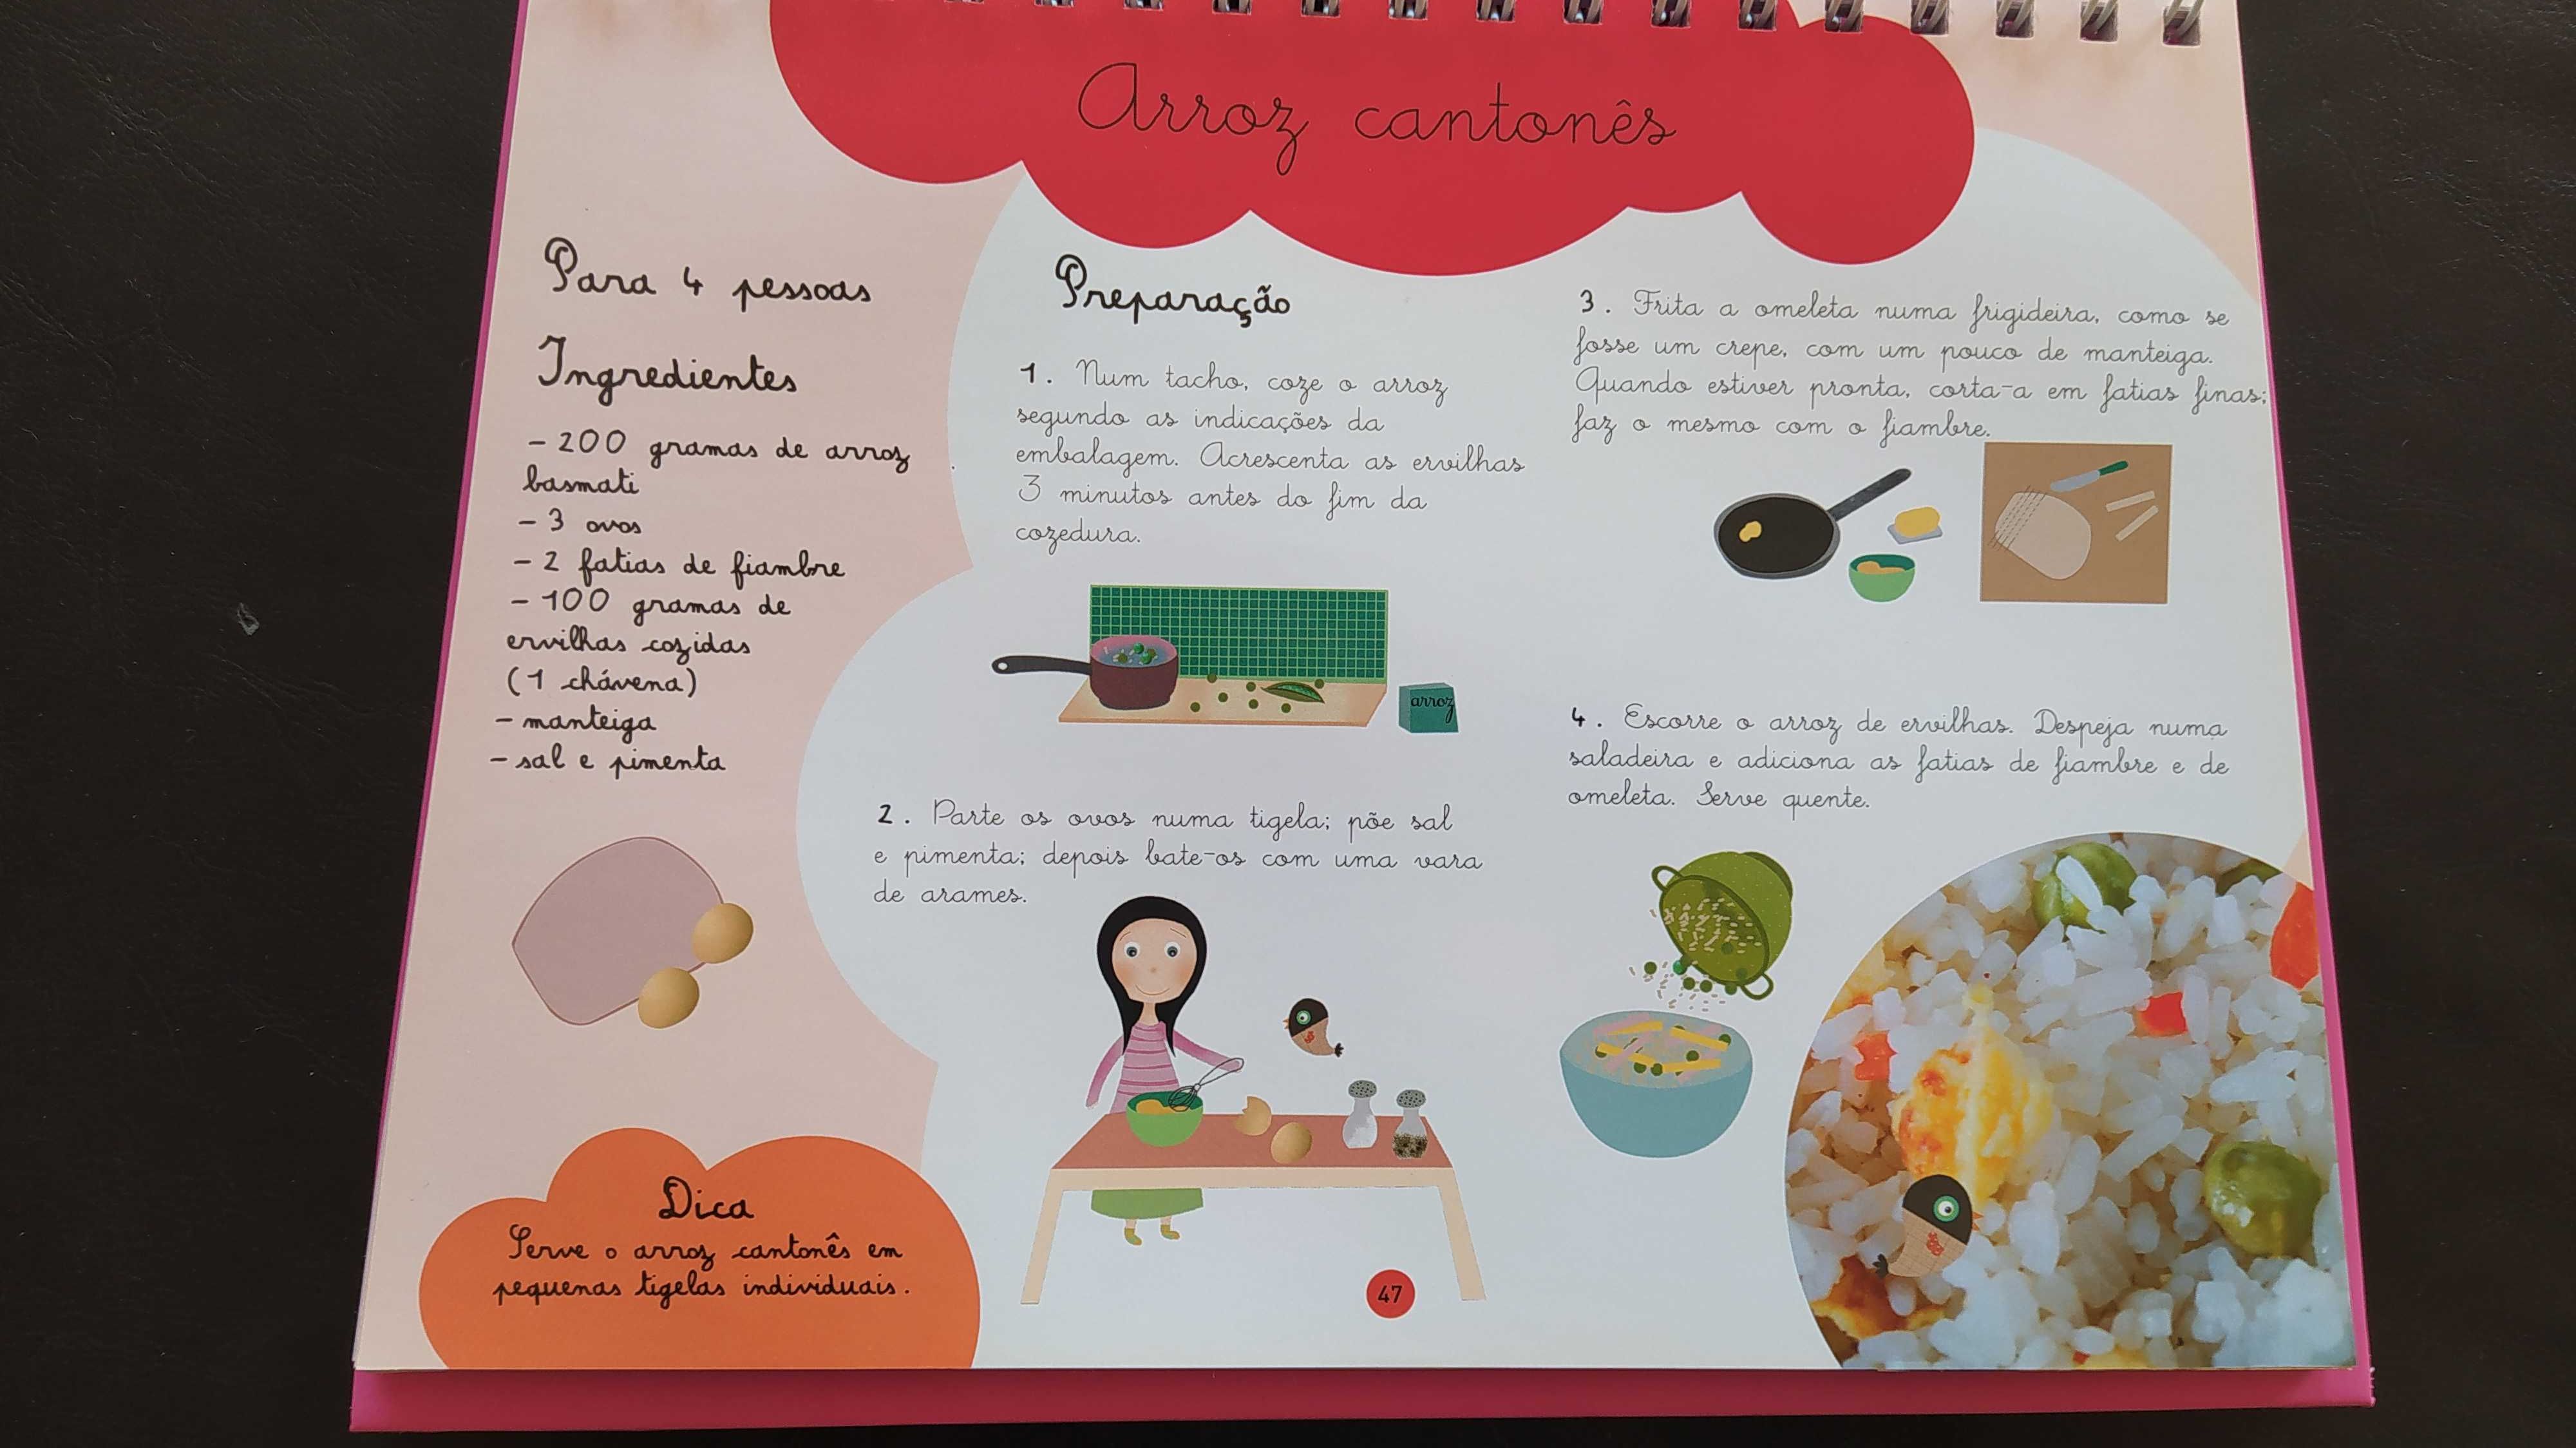 Arroz cantonês
Para 4 pessoas
Ingredientes
- 200 gramas de arroz
basmati
- 3 ovos
- 2 fatias de fiambre
- 100 gramas de
ervilhas cozidas
(1 chávena)
- manteiga
- sal e pimenta
Dica
Serve o arroz cantonês em
pequenas tigelas individuais.
Preparação
1. Num tacho, coze o arroz
segundo as indicações da
embalagem. Acrescenta as ervilhas
3 minutos antes do fim da
cozedura.
arroz
2. Parte os ovos numa tigela; põe sal
e pimenta; depois bate-os com uma vara
de arames.
3. Frita a omeleta numa frigideira, como se
fosse um crepe, com um pouco de manteiga.
Quando estiver pronta, corta-a em fatias finas;
faz o mesmo com o fiambre.
4. Escorre o arroz de ervilhas. Despeja numa
saladeira e adiciona as fatias de fiambre e de
omeleta. Serve quente.
47